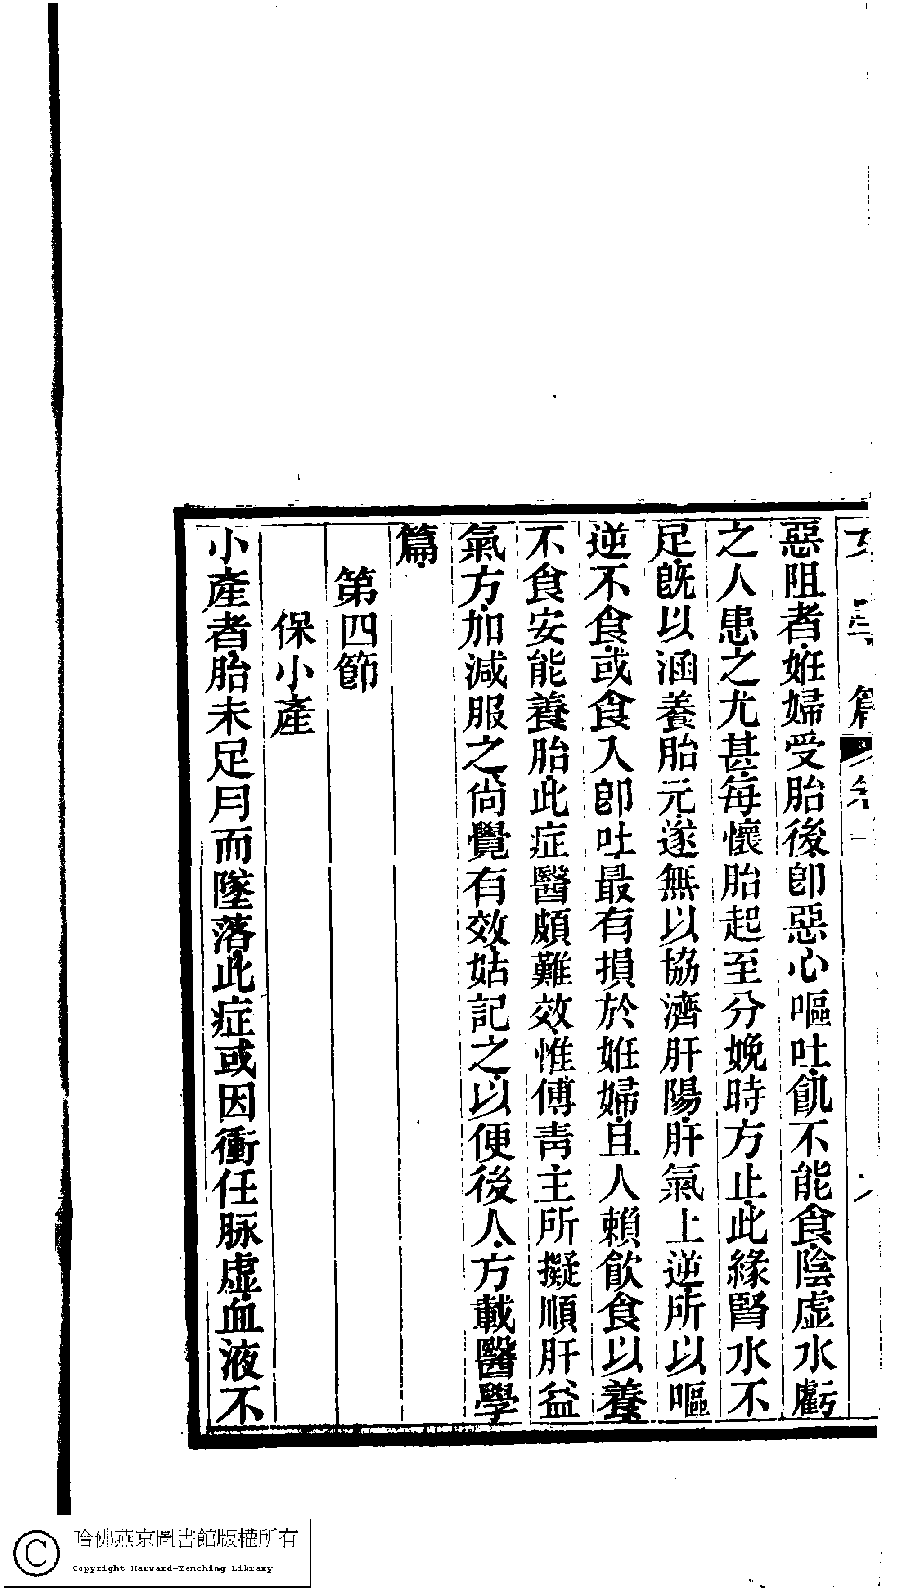 惡阻者姙婦受胎後卽惡心嘔吐飢不能食陰虛水虧
之人患之尤甚每懷胎起至分娩時方止此緣腎水不
足既以涵養胎元遂無以協濟肝陽肝氣上逆所以嘔
逆不食或食入卽吐最有損於姙婦且人賴飮食以養
不食安能養胎此症醫頗難效惟傅靑主所擬順肝益
氣方加減服之尙覺有效姑記之以便後人方載醫學
篇
第四節
保小產
小產者胎未足月而墜落此症或因衝任脉虛血液不
哈佛燕京圖書館版權所有
Copyright Harvard-Yenching Library